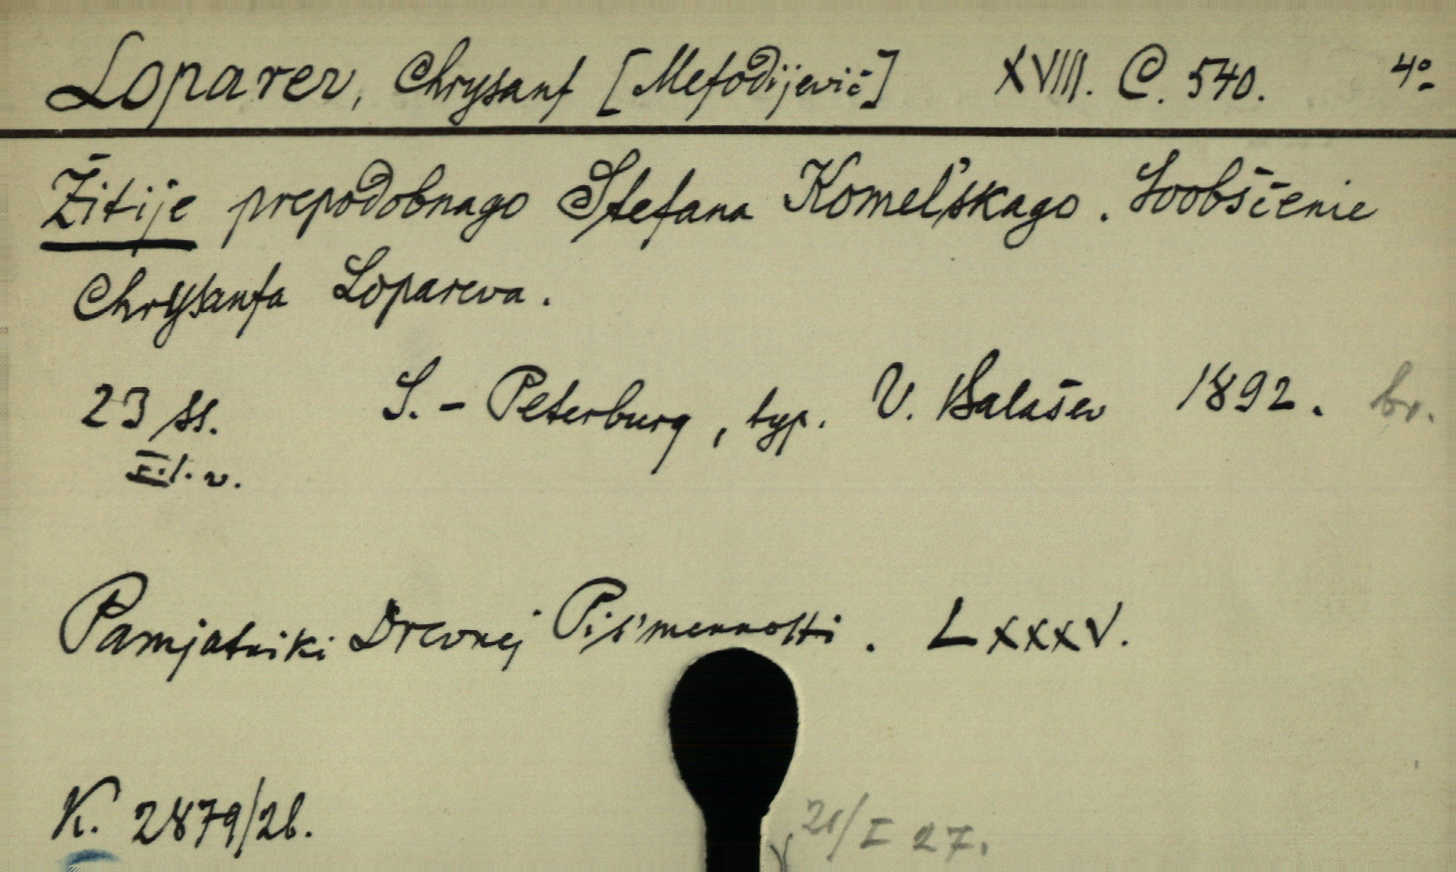 Loparev, Chrysanf [Mefodijevič] XVIII. C. 540. 4º
Žitije prepodobnago Stefana Komel'skago. Soobščenie
Chrysanfa Lopareva.
23 ss. S.-Peterburg, typ. V. Balašev 1892. br.
Pamjatniki Drevnej Pis'mennosti. LXXXV.
K. 2879/26.
21/I 27.